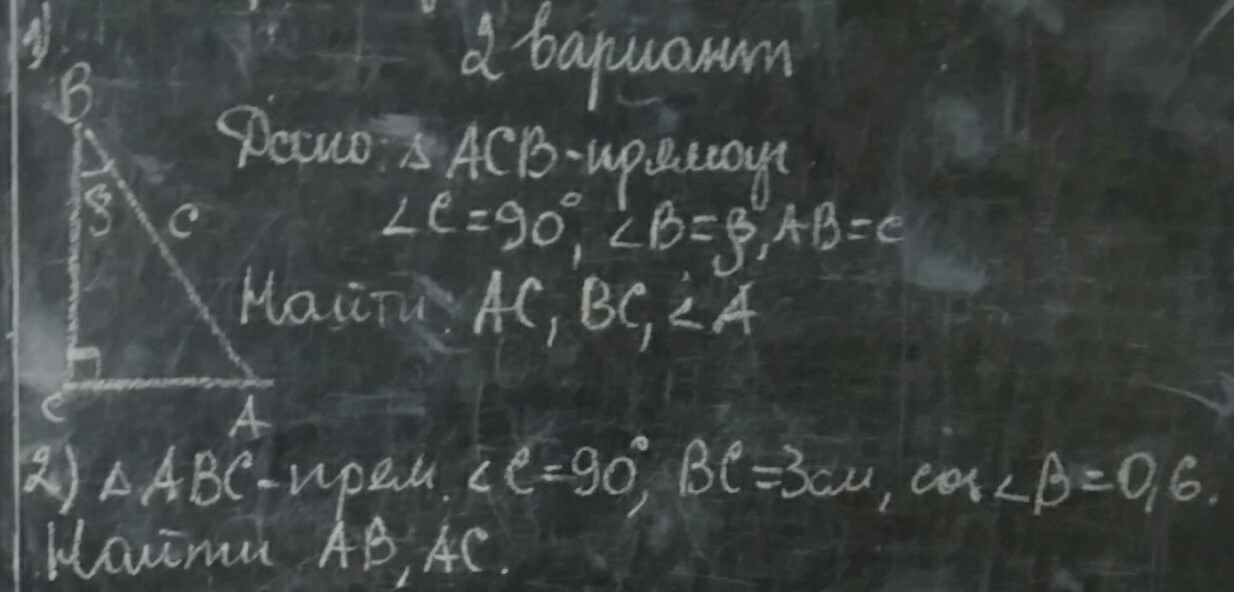 1)
2 вариант
B
Дано: △ ACB - прямоуг
β
c
∠C = 90°, ∠B = β, AB = c
Найти: AC, BC, ∠A
C
A
2) △ ABC - прям. ∠C = 90°, BC = 3см, cos ∠B = 0,6.
Найти AB, AC.